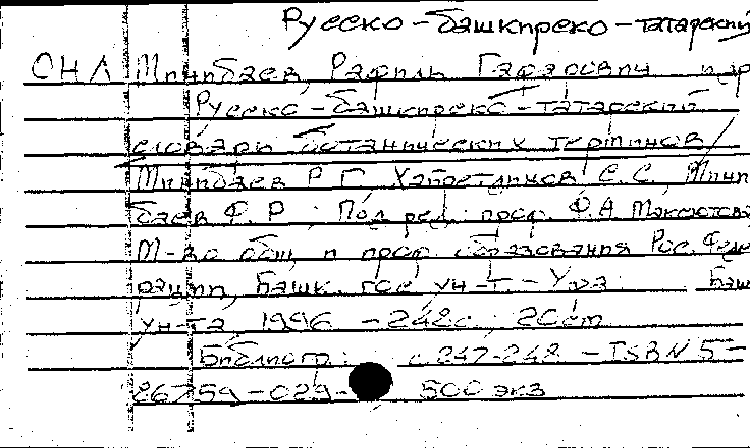 Русско-башкирско-татарский
СНЛ Минибаев, Рафиль Гафарович и др
Русско-башкирско-татарский
словарь ботанических терминов /
Минибаев Р. Г., Хабретдинов С. С., Мини
баев Ф. Р.; Под ред. проф. Ф. А. Максютова
М-во общ. и проф. образования Рос. Феде
рации, Башк. гос. ун-т. - Уфа: Баш
ун-та, 1996. - 248с.; 20см
Библиогр.: с.247-248 - ISBN 5-
86759-029- 500 экз